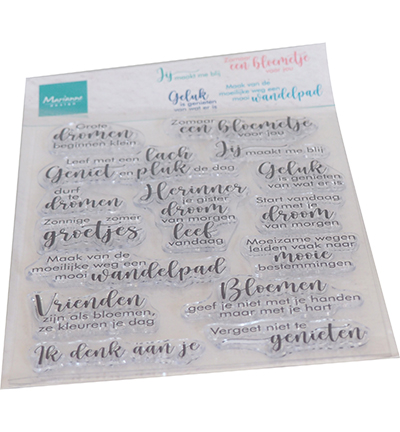 Marianne
DESIGN
Jij maakt me blij
Zomaar
een bloemetje
voor jou
Geluk
is genieten
van wat er is
Maak van de
moeilijke weg een
mooi wandelpad
Grote
dromen
beginnen klein
Zomaar
een bloemetje
voor jou
Leef met een lach
Geniet en pluk de dag
Jij maakt me blij
Geluk
is genieten
van wat er is
durf
te
dromen
Herinner
je gister
droom
van morgen
leef
vandaag
Zonnige zomer
groetjes
Start vandaag
met je
droom
van morgen
Maak van de
moeilijke weg een
mooi wandelpad
Moeizame wegen
leiden vaak naar
mooie
bestemmingen
Vrienden
zijn als bloemen,
ze kleuren je dag
Bloemen
geef je niet met je handen
maar met je hart
Vergeet niet te
genieten
Ik denk áán je